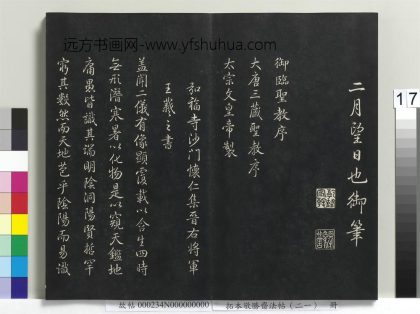 远方书画网-www.yfshuhua.com
二月望日也御筆
御臨聖教序
大唐三藏聖教序
太宗文皇帝製
弘福寺沙門懷仁集晉右將軍
王羲之書
蓋聞二儀有像顯覆載以含生四時
無形潛寒暑以化物是以窺天鑑地
庸愚皆識其端明陰洞陽賢哲罕
窮其數然而天地苞乎陰陽而易識
17
故帖 000234N000000000
拓本敬勝齋法帖(二一) 冊